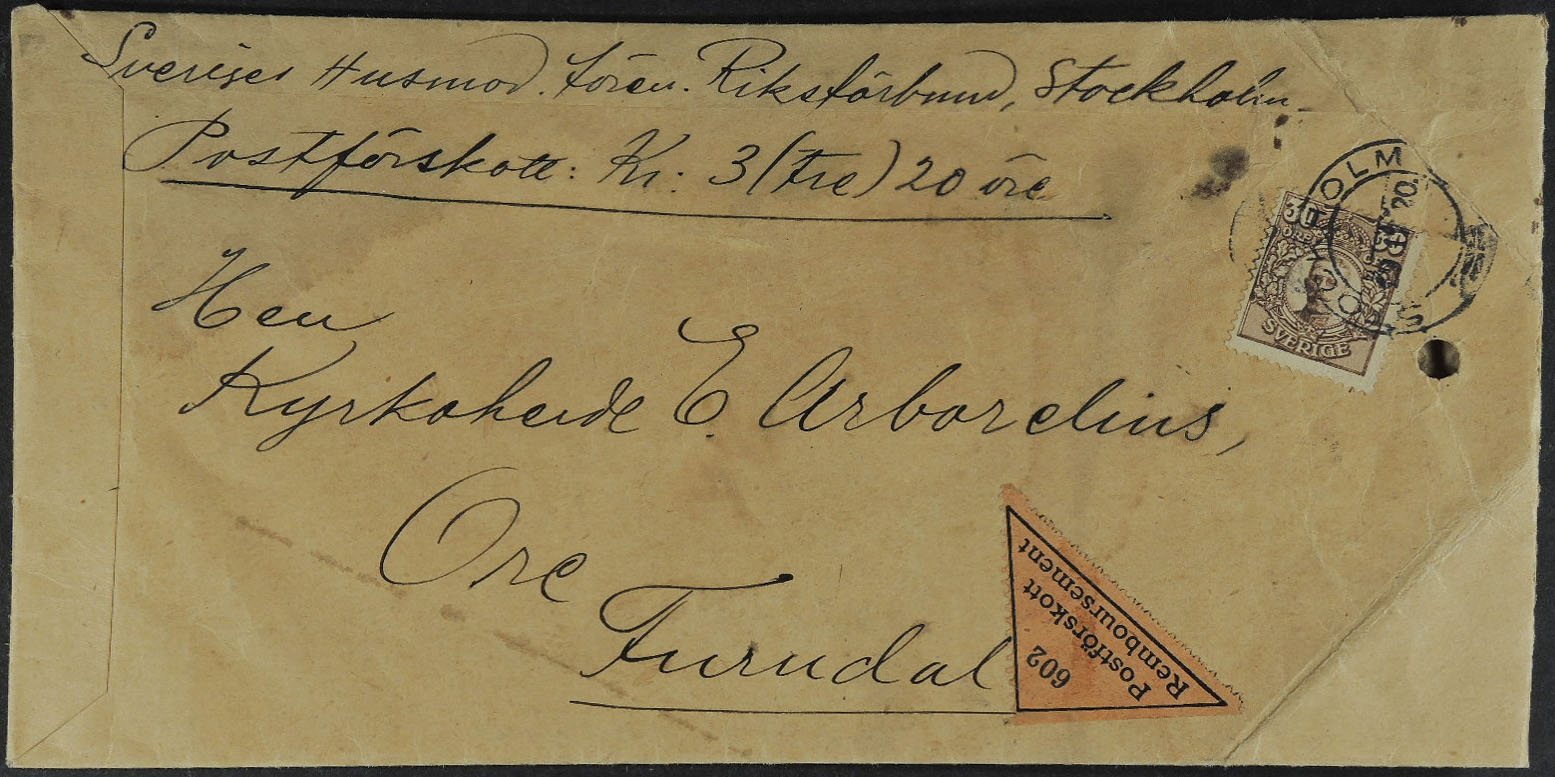 Sveriges Husmod. fören. Riksförbund, Stockholm
Postförskott: Kr: 3 (tre) 20 öre
Herr
Kyrkoherde E. Arborelius,
Ore
Furudal
30
ÖRE
SVERIGE
OLM
20.
602
Postförskott
Remboursement